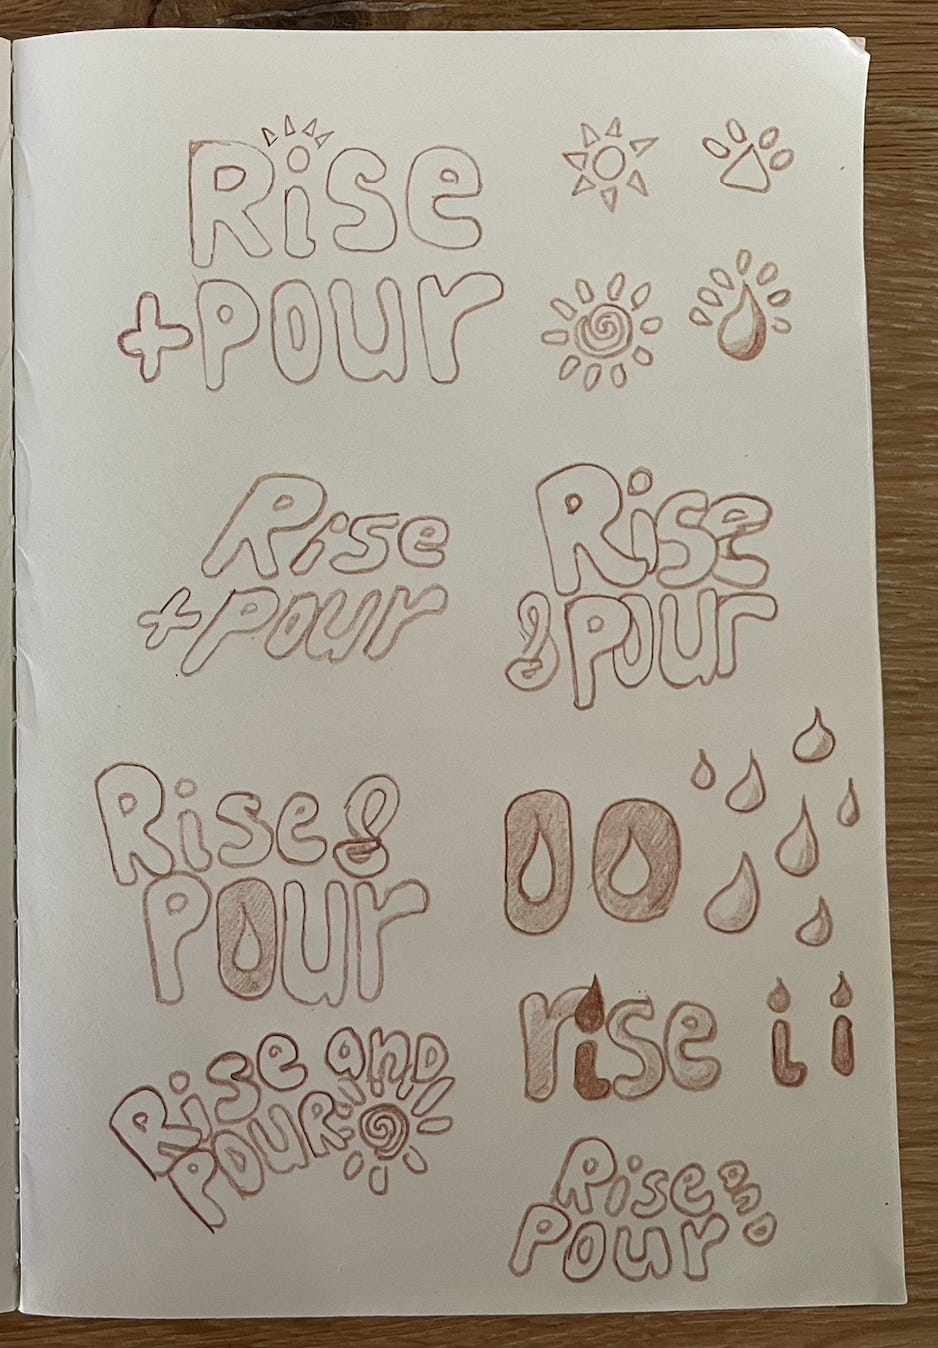 Rise
+Pour
Rise
+Pour
Rise
&Pour
Rise&
Pour
rise i i
Rise and
Pour
Rise and
Pour